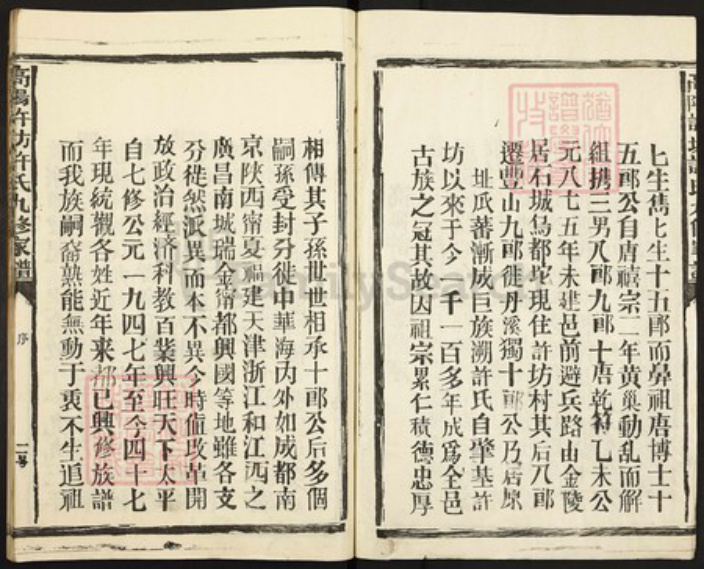 匕生雋匕生十五郎而鼻祖唐博士十
五郎公自唐禧宗二年黄巢動乱而解
組携三男八郎九郎十唐乾符乙未公
元八七五年未建邑前避兵路由金陵
居石城烏都坨現住許坊村其后八郎
遷豐山九郎徙丹溪獨十郎公乃居原
址瓜蕃漸成巨族溯許氏自肇基許
坊以來于今一千一百多年成爲全邑
古族之冠其故因祖宗累仁積德忠厚
相傳其子孫世世相承十郎公后多個
嗣孫受封分徙中華海内外如成都南
京陕西甯夏福建天津浙江和江西之
廣昌南城瑞金甯都興國等地雖各支
分徙然派異而本不異今時值改革開
放政治經済科教百業興旺天下太平
自七修公元一九四七年至今四十七
年現統觀各姓近年来都已興修族譜
而我族嗣裔熟能無動于衷不生追祖
高陽許坊許氏九修家譜
序
二号
FamilySearch